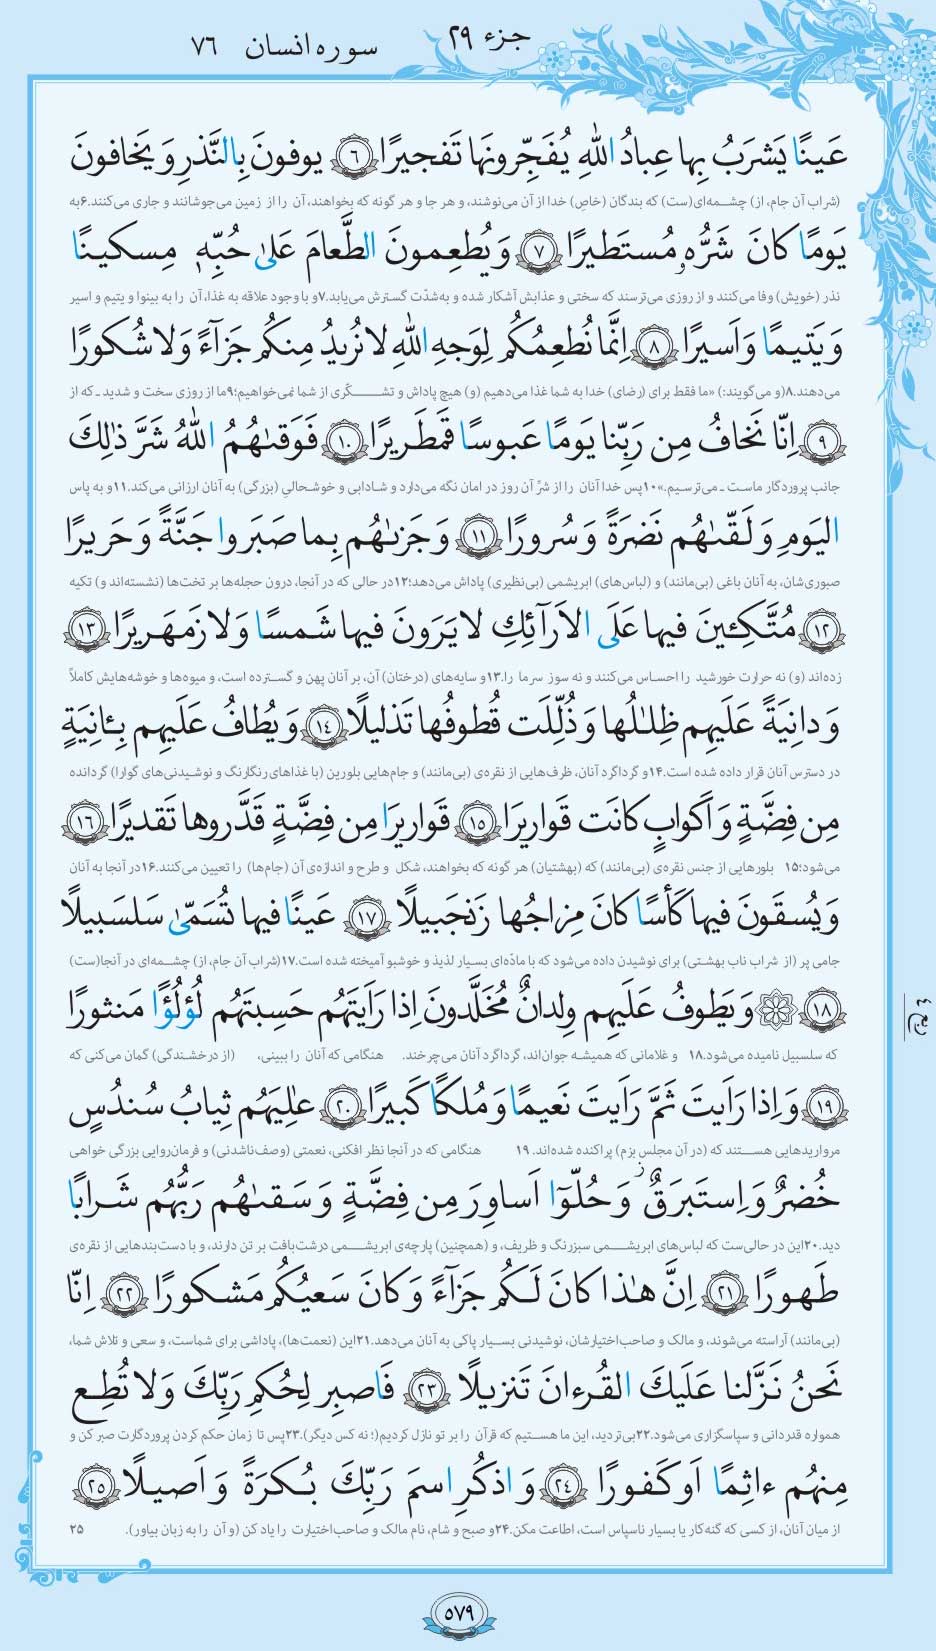 جزء ۲۹
سوره انسان ۷۶
عَینًا یَشرَبُ بِها عِبادُ اللهِ یُفَجِّرونَها تَفجیرًا ﴿٦﴾ یوفونَ بِالنَّذرِ وَ یَخافونَ
(شراب آن جام، از) چشمه‌ای(ست) که بندگان (خاصِ) خدا از آن می‌نوشند، و هر جا و هر گونه که بخواهند، آن را از زمین می‌جوشانند و جاری می‌کنند.۶به
یَومًا کانَ شَرُّهٗ مُستَطیرًا ﴿٧﴾ وَ یُطعِمونَ الطَّعامَ عَلىٰ حُبِّهٖ مِسکینًا
نذر (خویش) وفا می‌کنند و از روزی می‌ترسند که سختی و عذابش آشکار شده و به‌شدّت گسترش می‌یابد.۷و با وجود علاقه به غذا، آن را به بینوا و یتیم و اسیر
وَ یَتیمًا وَ اَسیرًا ﴿٨﴾ اِنَّما نُطعِمُکُم لِوَجهِ اللهِ لا نُریدُ مِنکُم جَزآءً وَ لا شُکورًا
می‌دهند.۸(و می‌گویند:) «ما فقط برای (رضای) خدا به شما غذا می‌دهیم (و) هیچ پاداش و تشکّری از شما نمی‌خواهیم؛۹ما از روزی سخت و شدید ـ که از
﴿٩﴾ اِنّا نَخافُ مِن رَبِّنا یَومًا عَبوسًا قَمطَریرًا ﴿١٠﴾ فَوَقىٰهُمُ اللهُ شَرَّ ذٰلِکَ
جانب پروردگار ماست ـ می‌ترسیم.»۱۰پس خدا آنان را از شرِّ آن روز در امان نگه می‌دارد و شادابی و خوشحالیِ (بزرگی) به آنان ارزانی می‌کند.۱۱و به پاس
الیَومِ وَ لَقّىٰهُم نَضرَةً وَ سُرورًا ﴿١١﴾ وَ جَزىٰهُم بِما صَبَروا جَنَّةً وَ حَریرًا
صبوری‌شان، به آنان باغی (بی‌مانند) و (لباس‌های) ابریشمی (بی‌نظیری) پاداش می‌دهد؛۱۲در حالی که در آنجا، درون حجله‌ها بر تخت‌ها (نشسته‌اند و) تکیه
﴿١٢﴾ مُتَّکِـٔینَ فیها عَلَى الاَرآئِکِ لا یَرَونَ فیها شَمسًا وَ لا زَمهَریرًا ﴿١٣﴾
زده‌اند (و) نه حرارت خورشید را احساس می‌کنند و نه سوز سرما را.۱۳و سایه‌های (درختان) آن، بر آنان پهن و گسترده است، و میوه‌ها و خوشه‌هایش کاملاً
وَ دانِیَةً عَلَیهِم ظِلٰلُها وَ ذُلِّلَت قُطوفُها تَذلیلًا ﴿١٤﴾ وَ یُطافُ عَلَیهِم بِـٔانِیَةٍ
در دسترس آنان قرار داده شده است.۱۴و گرداگرد آنان، ظرف‌هایی از نقره‌ی (بی‌مانند) و جام‌هایی بلورین (با غذاهای رنگارنگ و نوشیدنی‌های گوارا) گردانده
مِن فِضَّةٍ وَ اَکوابٍ کانَت قَواریرَا ﴿١٥﴾ قَواریرَا مِن فِضَّةٍ قَدَّروها تَقدیرًا ﴿١٦﴾
می‌شود؛۱۵ بلورهایی از جنس نقره‌ی (بی‌مانند) که (بهشتیان) هر گونه که بخواهند، شکل و طرح و اندازه‌ی آن (جام‌ها) را تعیین می‌کنند.۱۶در آنجا به آنان
وَ یُسقَونَ فیها کَأسًا کانَ مِزاجُها زَنجَبیلًا ﴿١٧﴾ عَینًا فیها تُسَمّىٰ سَلسَبیلًا
جامی پر (از شراب ناب بهشتی) برای نوشیدن داده می‌شود که با مادّه‌ای بسیار لذیذ و خوشبو آمیخته شده است.۱۷(شراب آن جام، از) چشمه‌ای در آنجا(ست)
﴿١٨﴾ وَ یَطوفُ عَلَیهِم وِلدانٌ مُخَلَّدونَ اِذا رَاَیتَهُم حَسِبتَهُم لُؤلُؤًا مَنثورًا
که سلسبیل نامیده می‌شود.۱۸ و غلامانی که همیشه جوان‌اند، گرداگرد آنان می‌چرخند. هنگامی که آنان را ببینی، (از درخشندگی) گمان می‌کنی که
﴿١٩﴾ وَ اِذا رَاَیتَ ثَمَّ رَاَیتَ نَعیمًا وَ مُلکًا کَبیرًا ﴿٢٠﴾ عٰلِیَهُم ثِیابُ سُندُسٍ
مرواریدهایی هستند که (در آن مجلس بزم) پراکنده شده‌اند. ۱۹ هنگامی که در آنجا نظر افکنی، نعمتی (وصف‌ناشدنی) و فرمان‌روایی بزرگی خواهی
خُضرٌ وَ اِستَبرَقٌ ز وَ حُلّوٓا اَساوِرَ مِن فِضَّةٍ وَ سَقىٰهُم رَبُّهُم شَرابًا
دید.۲۰این در حالی‌ست که لباس‌های ابریشمی سبزرنگ و ظریف، و (همچنین) پارچه‌ی ابریشمی درشت‌بافت بر تن دارند، و با دست‌بندهایی از نقره‌ی
طَهورًا ﴿٢١﴾ اِنَّ هٰذا کانَ لَکُم جَزآءً وَ کانَ سَعیُکُم مَشکورًا ﴿٢٢﴾ اِنّا
(بی‌مانند) آراسته می‌شوند، و مالک و صاحب‌اختیارشان، نوشیدنی بسیار پاکی به آنان می‌دهد.۲۱این (نعمت‌ها)، پاداشی برای شماست، و سعی و تلاش شما،
نَحنُ نَزَّلنا عَلَیکَ القُرءانَ تَنزیلًا ﴿٢٣﴾ فَاصبِر لِحُکمِ رَبِّکَ وَ لا تُطِع
همواره قدردانی و سپاسگزاری می‌شود.۲۲بی‌تردید، این ما هستیم که قرآن را بر تو نازل کردیم(؛ نه کس دیگر).۲۳پس تا زمان حکم کردن پروردگارت صبر کن و
مِنهُم ءاثِمًا اَو کَفورًا ﴿٢٤﴾ وَ اذکُرِ اسمَ رَبِّکَ بُکرَةً وَ اَصیلًا ﴿٢٥﴾
از میان آنان، از کسی که گنه‌کار یا بسیار ناسپاس است، اطاعت مکن.۲۴و صبح و شام، نام مالک و صاحب‌اختیارت را یاد کن (و آن را به زبان بیاور). ۲۵
ربع ٤
۵۷۹